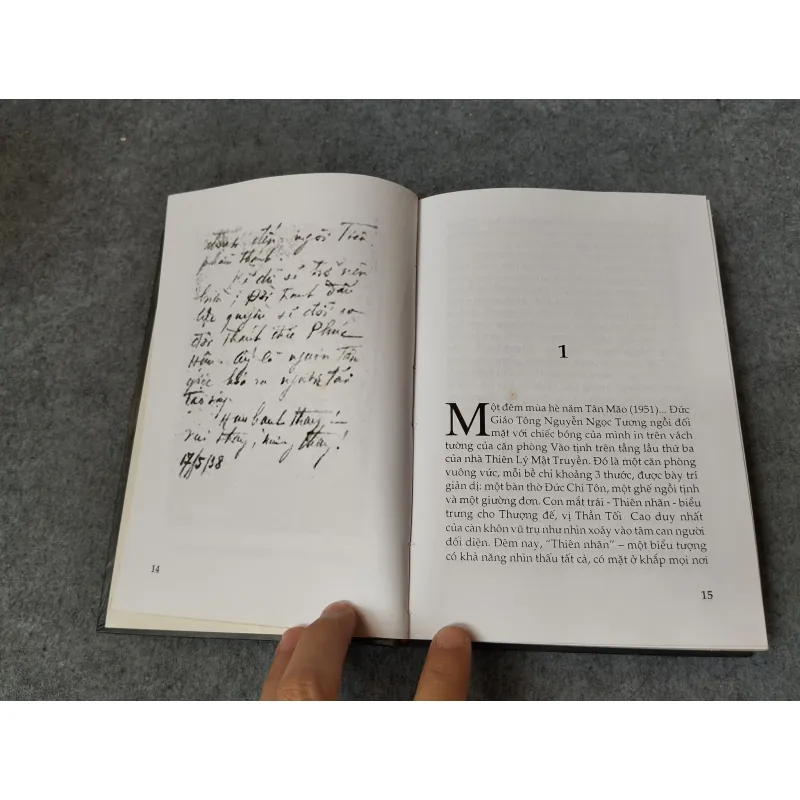 đến ngôi Tiên
phẩm thánh.
Kẻ dữ sẽ trở nên
hiền; Đời tranh đấu
quyền sẽ đổi ra
đời thánh Phúc
Hậu. Ấy là nguơn Tân
thay!
vui thay, mừng thay!
17/5/38
14
1
Một đêm mùa hè năm Tân Mão (1951)... Đức
Giáo Tông Nguyễn Ngọc Tương ngồi đối
mặt với chiếc bóng của mình in trên vách
tường của căn phòng Vào tịnh trên tầng lầu thứ ba
của nhà Thiên Lý Mật Truyền. Đó là một căn phòng
vuông vức, mỗi bề chỉ khoảng 3 thước, được bày trí
giản dị: một bàn thờ Đức Chí Tôn, một ghế ngồi tịnh
và một giường đơn. Con mắt trái - Thiên nhãn - biểu
trưng cho Thượng đế, vị Thần Tối Cao duy nhất
của càn khôn vũ trụ như nhìn xoáy vào tâm can người
đối diện. Đêm nay, "Thiên nhãn" – một biểu tượng
có khả năng nhìn thấu tất cả, có mặt ở khắp mọi nơi
15